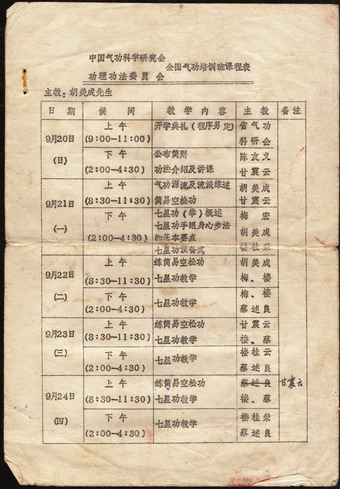 中国气功科学研究会
全国气功培训班课程表
功理功法委员会
主教：胡美成先生
日期 侯间 教学内容 主教 备注
9月20日 (日) 上午 (9:00-11:00) 开学典礼（程序另定） 省气功科研会
下午 (2:00-4:30) 公布简则 陈友义
功法介绍及讲课 甘震云
9月21日 (一) 上午 (8:30-11:30) 气功源流及流派综述 胡美成
简易空松功 甘震云
下午 (2:00-4:30) 七星功（拳）概述 梅宏
七星功手眼身心步法的基本要点 胡美成
七星功预备式 楼桂荣
9月22日 (二) 上午 (8:30-11:30) 练简易空松功 胡美成
七星功教学 梅、楼
下午 (2:00-4:30) 七星功教学 梅、楼
蔡述良
9月23日 (三) 上午 (8:30-11:30) 练简易空松功 甘震云
七星功教学 楼、蔡
下午 (2:00-4:30) 七星功教学 楼桂云
蔡述良
9月24日 (四) 上午 (8:30-11:30) 练简易空松功 蔡述良 甘震云
七星功教学 楼、蔡
下午 (2:00-4:30) 七星功教学 楼桂荣
蔡述良